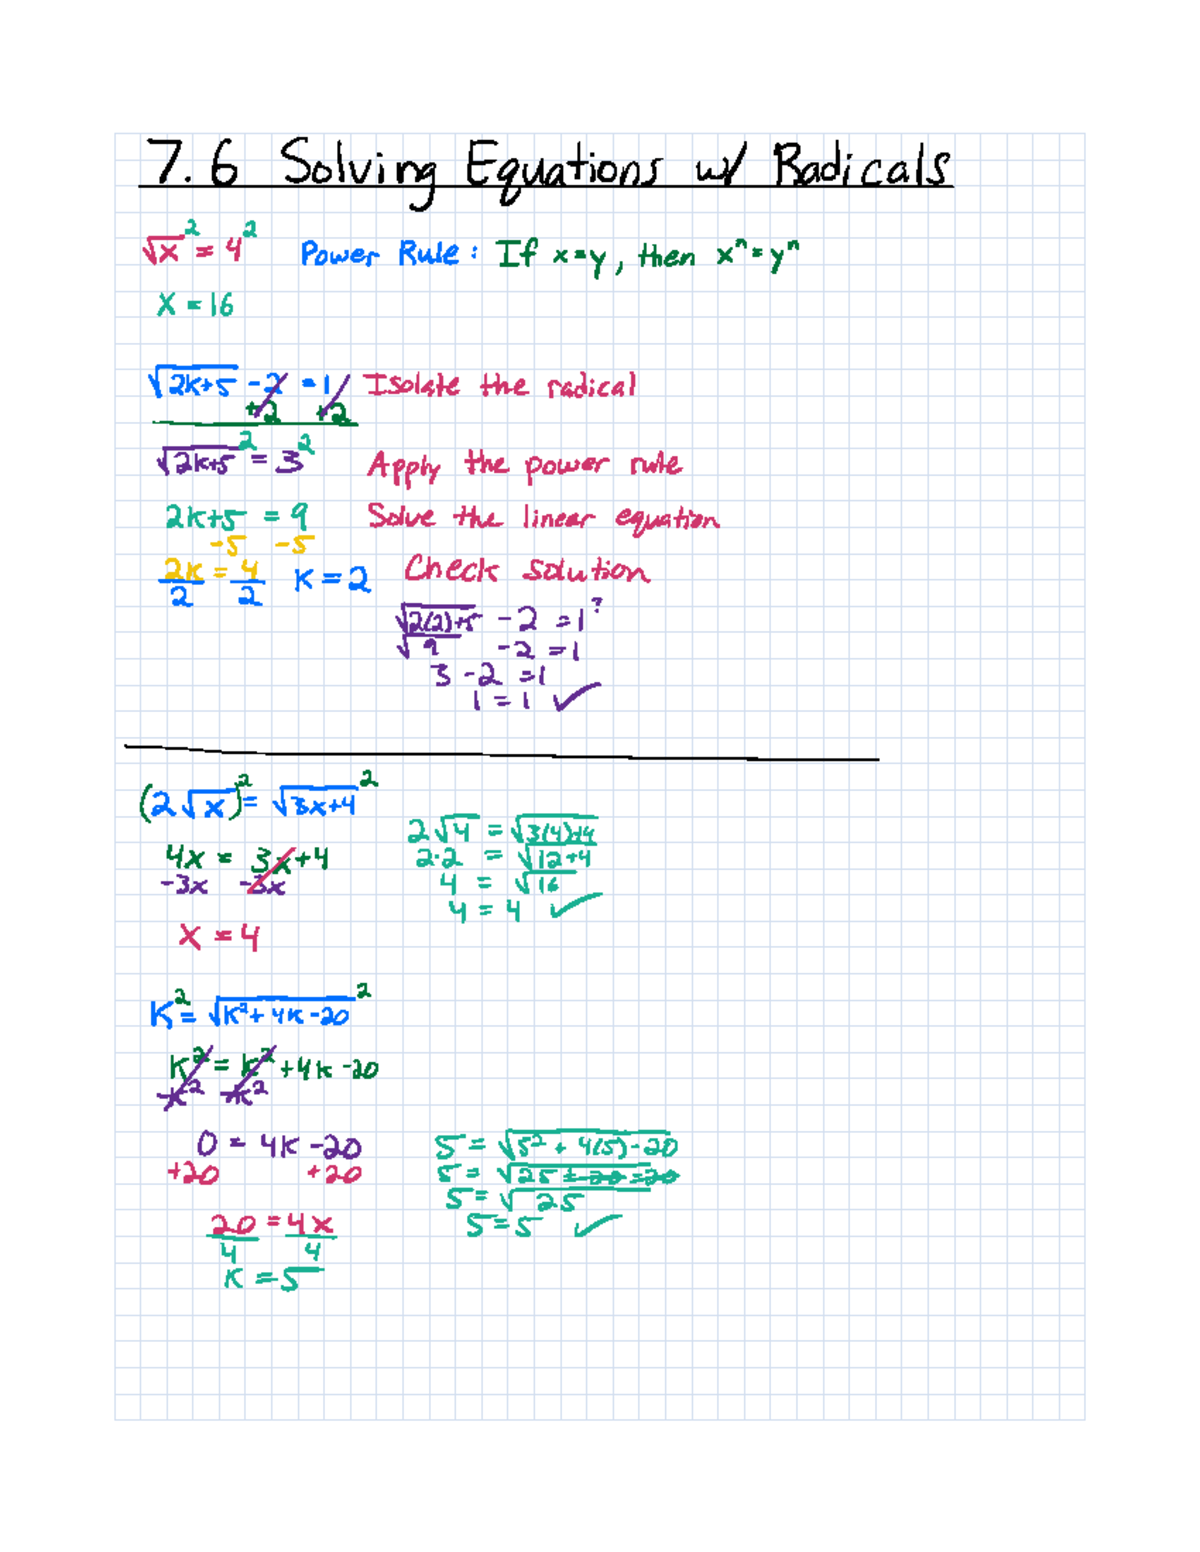 7.6 Solving Equations w/ Radicals
√x² = 4² Power Rule: If x=y, then xⁿ=yⁿ
X = 16
√2k+5 - 2 = 1 Isolate the radical
+2 +2
√2k+5² = 3² Apply the power rule
2k+5 = 9 Solve the linear equation
-5 -5
2k = 4 K = 2 Check solution
2 2
√2(2)+5 - 2 = 1?
√9 - 2 = 1
3 - 2 = 1
1 = 1 ✓
(2√x)² = √3x+4²
4x = 3x+4
-3x -3x
X = 4
2√4 = √3(4)+4
2·2 = √12+4
4 = √16
4 = 4 ✓
K² = √K²+4K-20²
K² = K²+4K-20
-K² -K²
0 = 4K-20
+20 +20
20 = 4x
4 4
K = 5
5 = √5² + 4(5)-20
5 = √25 +20 -20
5 = √25
5 = 5 ✓